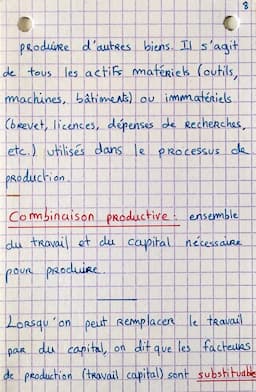 8
produire d'autres biens. Il s'agit
de tous les actifs matériels (outils,
machines, bâtiments) ou immatériels
(brevet, licences, dépenses de recherches,
etc.) utilisés dans le processus de
production.
Combinaison productive : ensemble
du travail et du capital nécessaire
pour produire.
Lorsqu'on peut remplacer le travail
par du capital, on dit que les facteurs
de production (travail capital) sont substituable